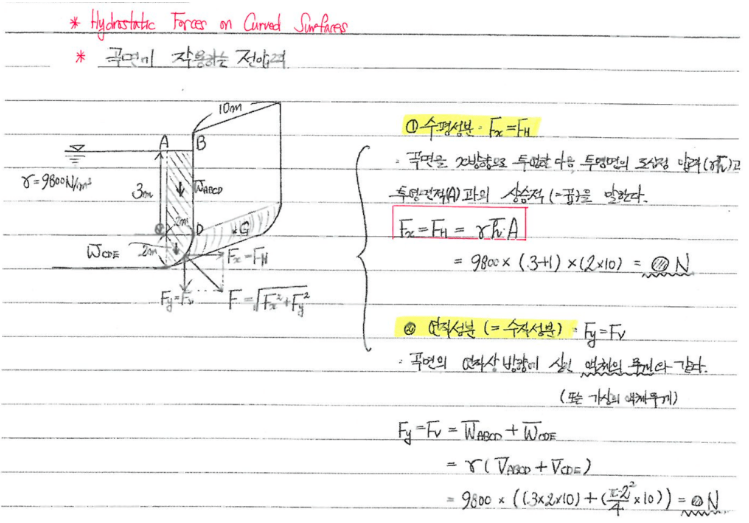 * Hydrostatic Forces on Curved Surfaces
* 곡면에 작용하는 전압력
10m
A B
γ=9800N/m³
3m
W_ABCD
2m
D
G
W_CDE
2m
F_x=F_H
F_y=F_V
F=√(F_x²+F_y²)
① 수평성분 : F_x=F_H
· 곡면을 x방향으로 투영한 다음 투영면의 도심점 압력(γh̄)과
투영면적(A)과의 상승적(=곱)을 말한다.
F_x = F_H = γh̄A
= 9800 × (3+1) × (2×10) = @ N
② 연직성분 (=수직성분) : F_y=F_V
· 곡면의 연직상방향에 실린 액체의 무게와 같다.
(또는 가상의 액체무게)
F_y=F_V = W_ABCD + W_CDE
= γ(V_ABCD + V_CDE)
= 9800 × ((3×2×10) + (π·2²/4 ×10)) = @ N